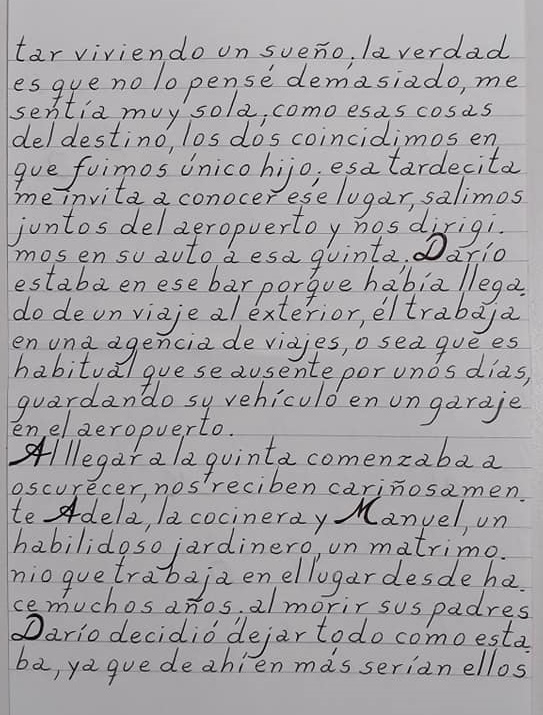 tar viviendo un sueño; la verdad
es que no lo pensé demasiado, me
sentía muy sola, como esas cosas
del destino, los dos coincidimos en
que fuimos único hijo; esa tardecita
me invita a conocer ese lugar, salimos
juntos del aeropuerto y nos dirigi.
mos en su auto a esa quinta. Darío
estaba en ese bar porque había llega.
do de un viaje al exterior, él trabaja
en una agencia de viajes, o sea que es
habitual que se ausente por unos días,
guardando su vehículo en un garaje
en el aeropuerto.
Al llegar a la quinta comenzaba a
oscurecer, nos reciben cariñosamen.
te Adela, la cocinera y Manuel, un
habilidoso jardinero, un matrimo.
nio que trabaja en el lugar desde ha.
ce muchos años. al morir sus padres
Darío decidió dejar todo como esta.
ba, ya que de ahí en más serían ellos